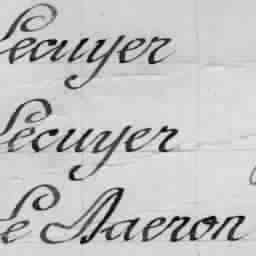 Lecuyer
Lecuyer
Le Naeron